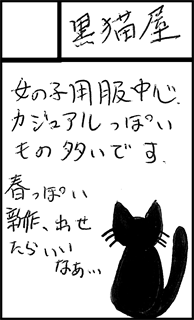 黒猫屋
女の子用服中心.
カジュアルっぽい
もの多いです.
春っぽい
新作、出せ
たらいい
なぁ…